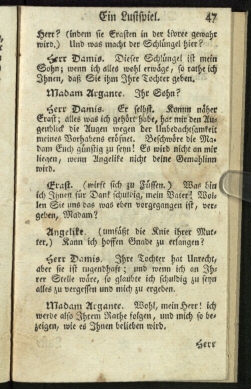 Ein Lustspiel. 47
Herr? (indem sie Erasten in der Livree gewahr
wird.) Und was macht der Schlüngel hier?
Herr Damis. Dieser Schlüngel ist mein
Sohn; wenn ich alles wohl erwäge, so rathe ich
Ihnen, daß Sie ihm Ihre Tochter geben.
Madam Argante. Ihr Sohn?
Herr Damis. Er selbst. Komm näher
Erast; alles was ich gehört habe, hat mir den Au-
genblick die Augen wegen der Unbedachtsamkeit
meines Vorhabens eröfnet. Beschwöre die Ma-
dam Euch günstig zu seyn! Es wird nicht an mir
liegen, wenn Angelike nicht deine Gemahlinn
wird.
Erast. (wirft sich zu Füssen.) Was bin
ich Ihnen für Dank schuldig, mein Vater! Wol-
len Sie uns das was eben vorgegangen ist, ver-
geben, Madam?
Angelike. (umfaßt die Knie ihrer Mut-
ter.) Kann ich hoffen Gnade zu erlangen?
Herr Damis. Ihre Tochter hat Unrecht,
aber sie ist tugendhaft; und wenn ich an Ih-
rer Stelle wäre, so glaubte ich schuldig zu seyn
alles zu vergessen und mich zu ergeben.
Madam Argante. Wohl, mein Herr! ich
werde also Ihrem Rathe folgen, und mich so be-
zeigen, wie es Ihnen belieben wird.
Herr